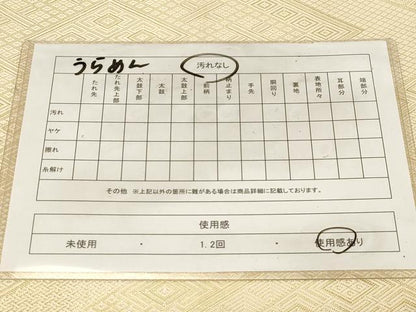 うらめん 汚れなし
たれ先 たれ先上部 太鼓下部 太鼓 太鼓上部 前柄 柄止まり 手先 胴回り 裏地 表地所々 耳部分 端部分
汚れ
ヤケ
擦れ
糸解け
その他 ※上記以外の箇所に難がある場合は商品詳細に記載しております。
使用感
未使用 ・ 1.2回 ・ 使用感あり